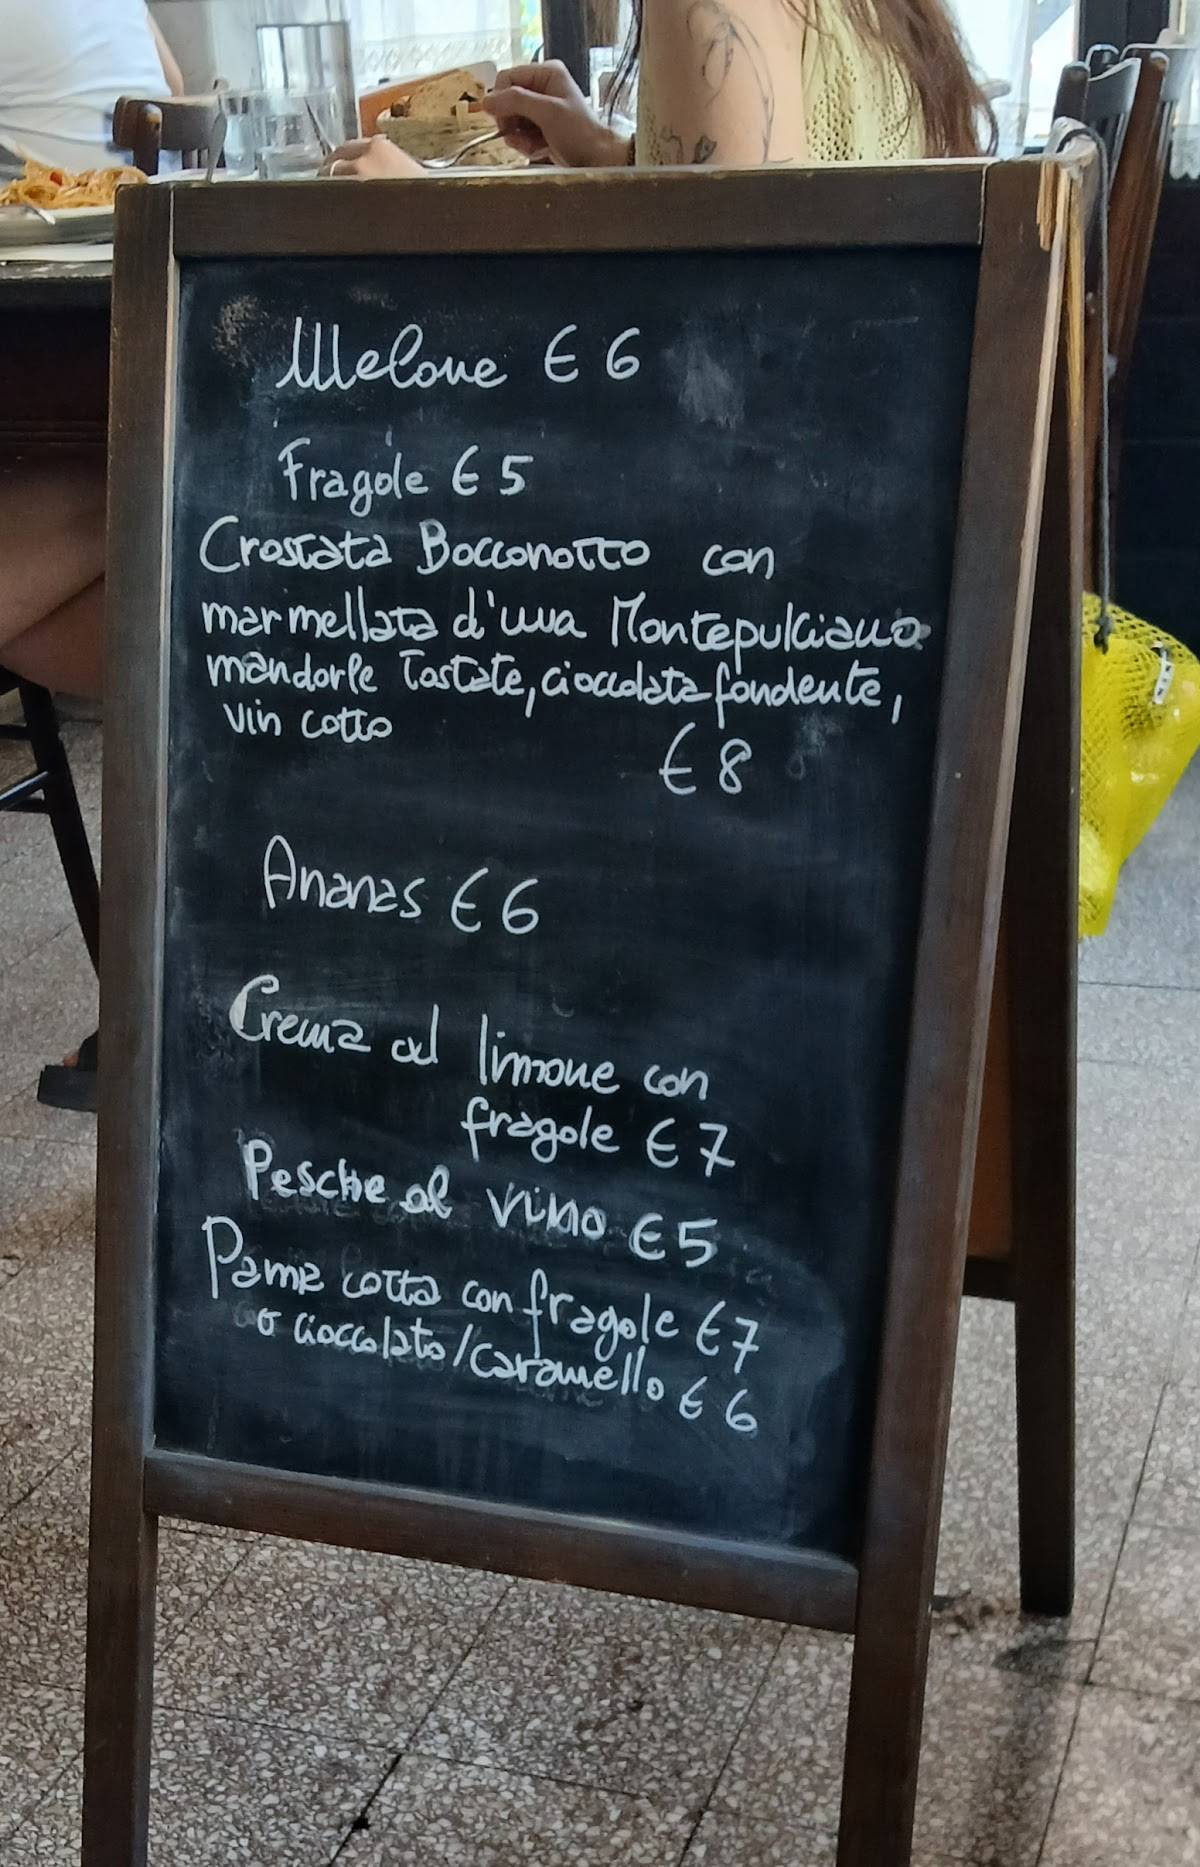 Melone € 6
Fragole € 5
Crostata Bocconotto con
marmellata d'uva Montepulciano
mandorle tostate, cioccolata fondente,
vin cotto
€ 8
Ananas € 6
Crema al limone con
fragole € 7
Pesche al vino € 5
Panna cotta con fragole € 7
o cioccolato/caramello € 6